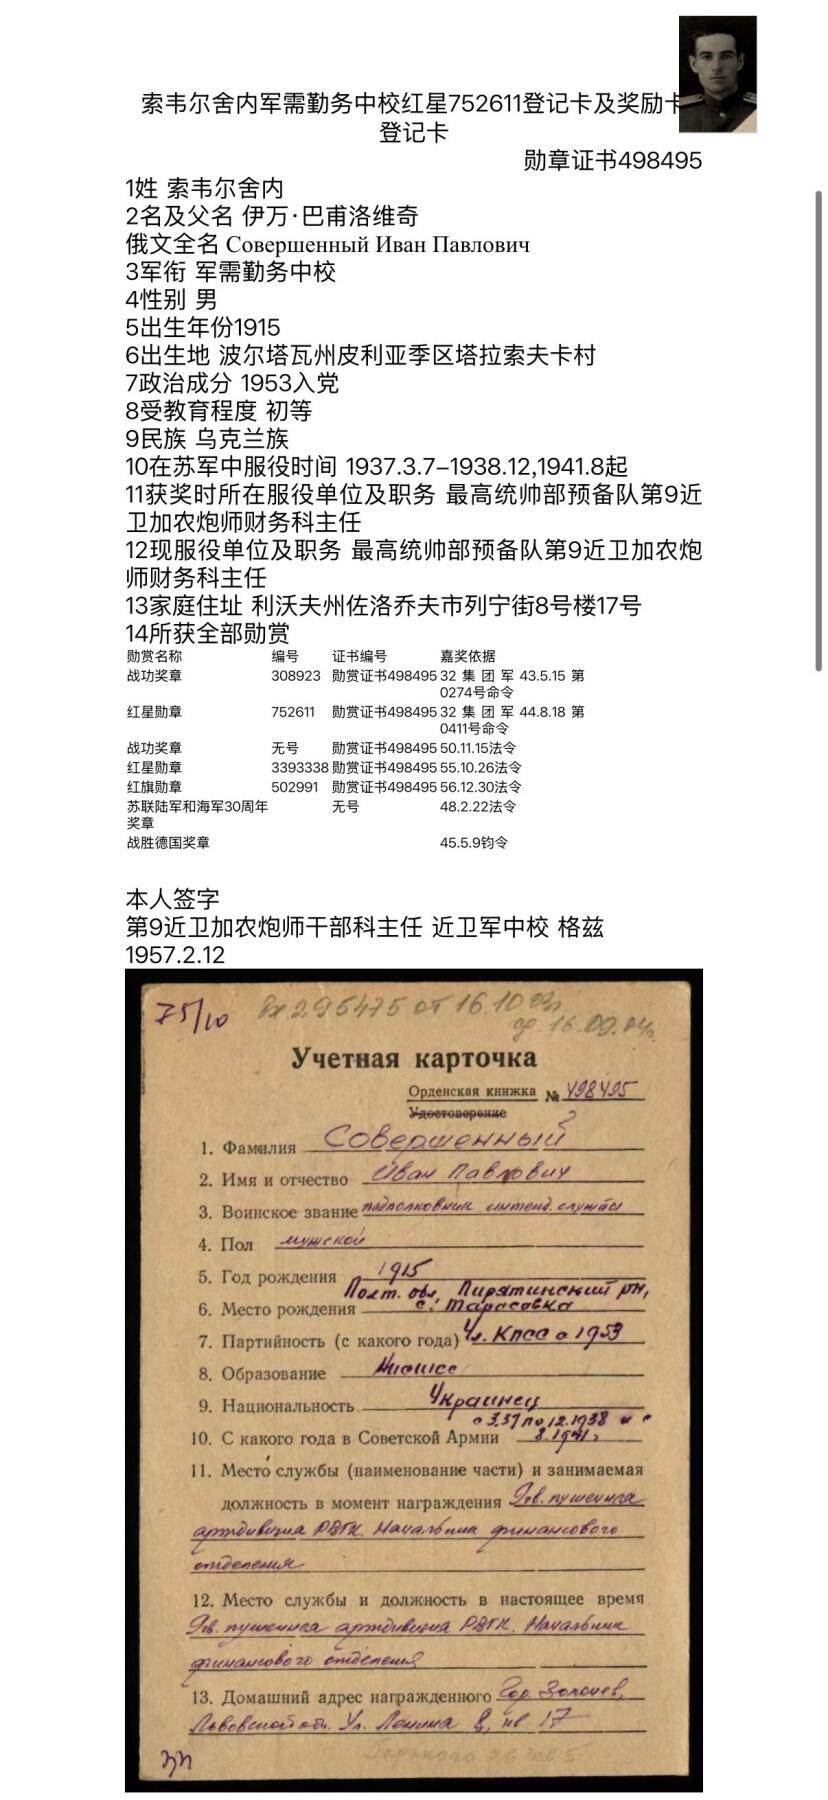 索韦尔舍内军需勤务中校红星752611登记卡及奖励卡
登记卡
勋章证书498495
1姓 索韦尔舍内
2名及父名 伊万·巴甫洛维奇
俄文全名 Совершенный Иван Павлович
3军衔 军需勤务中校
4性别 男
5出生年份1915
6出生地 波尔塔瓦州皮利亚季区塔拉索夫卡村
7政治成分 1953入党
8受教育程度 初等
9民族 乌克兰族
10在苏军中服役时间 1937.3.7–1938.12,1941.8起
11获奖时所在服役单位及职务 最高统帅部预备队第9近
卫加农炮师财务科主任
12现服役单位及职务 最高统帅部预备队第9近卫加农炮
师财务科主任
13家庭住址 利沃夫州佐洛乔夫市列宁街8号楼17号
14所获全部勋赏
勋赏名称 编号 证书编号 嘉奖依据
战功奖章 308923 勋赏证书498495 32集团军43.5.15第
0274号命令
红星勋章 752611 勋赏证书498495 32集团军44.8.18第
0411号命令
战功奖章 无号 勋赏证书498495 50.11.15法令
红星勋章 3393338 勋赏证书498495 55.10.26法令
红旗勋章 502991 勋赏证书498495 56.12.30法令
苏联陆军和海军30周年 无号 48.2.22法令
奖章
战胜德国奖章 45.5.9钧令
本人签字
第9近卫加农炮师干部科主任 近卫军中校 格兹
1957.2.12
75/10 Вх 295475 от 16.10
16.09.04
Учетная карточка
Орденская книжка № 498495
Удостоверение
1. Фамилия Совершенный
2. Имя и отчество Иван Павлович
3. Воинское звание подполковник интенд. службы
4. Пол мужской
5. Год рождения 1915
Полт. обл. Пирятинский рн,
6. Место рождения с. Тарасовка
7. Партийность (с какого года) Чл. КПСС с 1953
8. Образование Низшее
9. Национальность Украинец
с 3.37 по 12.1938 и с
10. С какого года в Советской Армии 8.1941г
11. Место службы (наименование части) и занимаемая
должность в момент награждения 9гв. пушечная
артдивизия РВГК. Начальник финансового
отделения
12. Место службы и должность в настоящее время
9гв. пушечная артдивизия РВГК. Начальник
финансового отделения
13. Домашний адрес награжденного Гор. Золочев,
Львовской обл. Ул. Ленина 8, кв 17